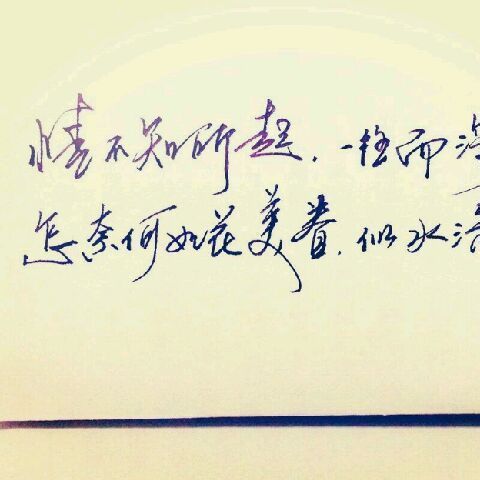 情不知所起,一往而深
怎奈何如花美眷,似水流